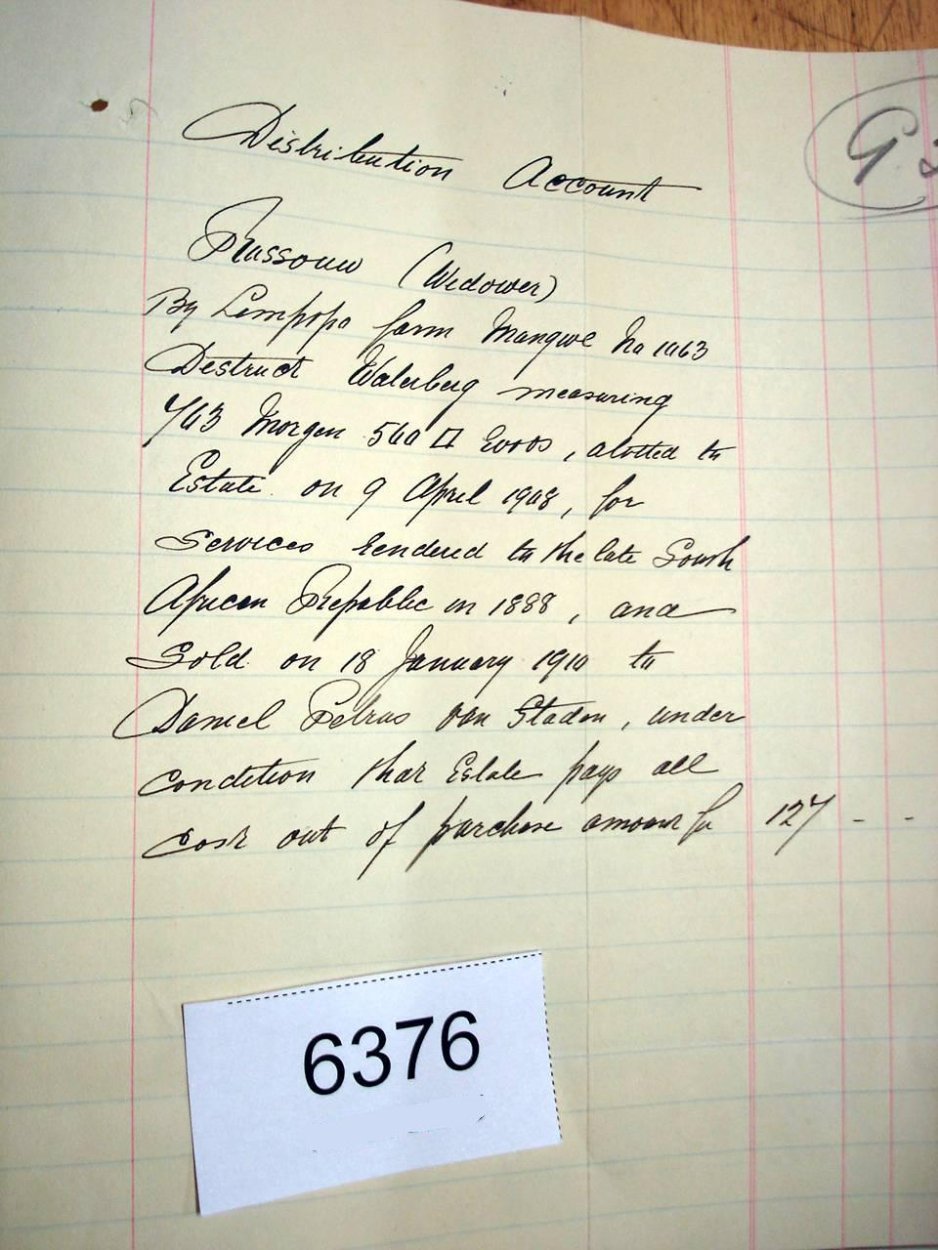 Distribution Account
G
Russouw (Widower)
By Limpopo farm Mangwe No 1063
District Waterberg measuring
763 Morgen 560 □ Roods, alotted to
Estate on 9 April 1908, for
services rendered to the late South
African Republic in 1888, and
Sold on 18 January 1910 to
Daniel Petrus van Staden, under
condition that Estate pays all
cost out of purchase amount for 127 - -
6376